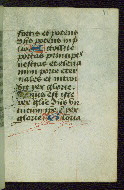 fortis et potens
dns potens in p
lio. Attollite
portas principes
vestras et eleva
mini porte eter
nales et introi
bit rex glorie.
Quis est iste
rex glorie dns vir
tutum ipse est rex
glorie. Gloria